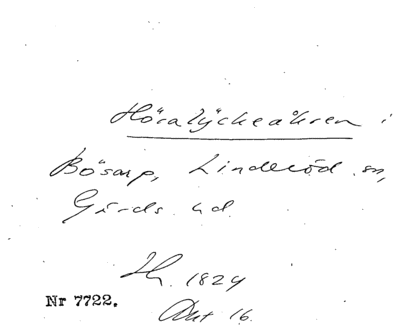 Höralyckeåkren i
Bösarp, Linderöd sn,
Gärds hd.
1829
Nr 7722.
Akt 16.